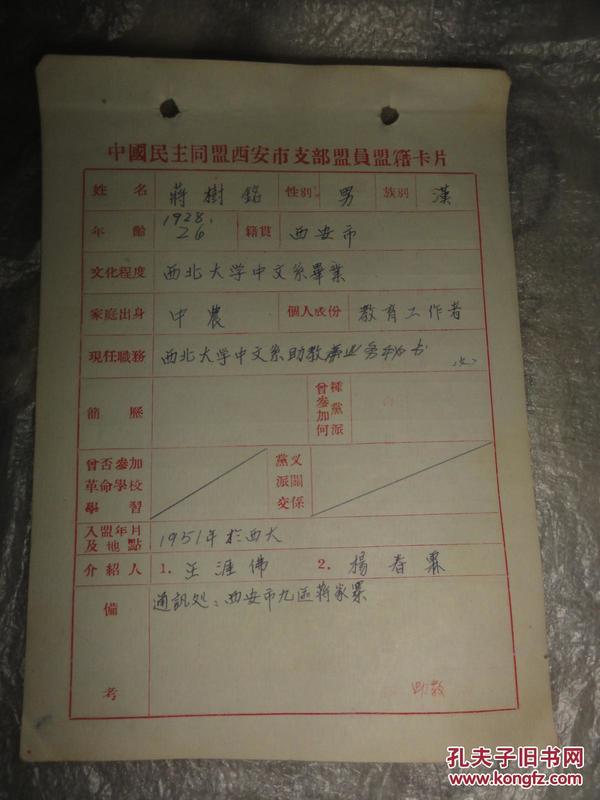 中國民主同盟西安市支部盟員盟籍卡片
姓名 蒋樹銘 性別 男 族別 漢
年齡 1928. 26 籍貫 西安市
文化程度 西北大学中文系畢業
家庭出身 中農 個人成份 教育工作者
現任職務 西北大学中文系助教兼业务秘书
簡歷 曾參加何種黨派
曾否參加革命學校學習 黨派交叉關係
入盟年月及地點 1951年於西大
介紹人 1. 王涯佛 2. 楊春霖
備考 通訊处：西安市九區蒋家寨
助教
孔夫子旧书网
www.kongfz.com